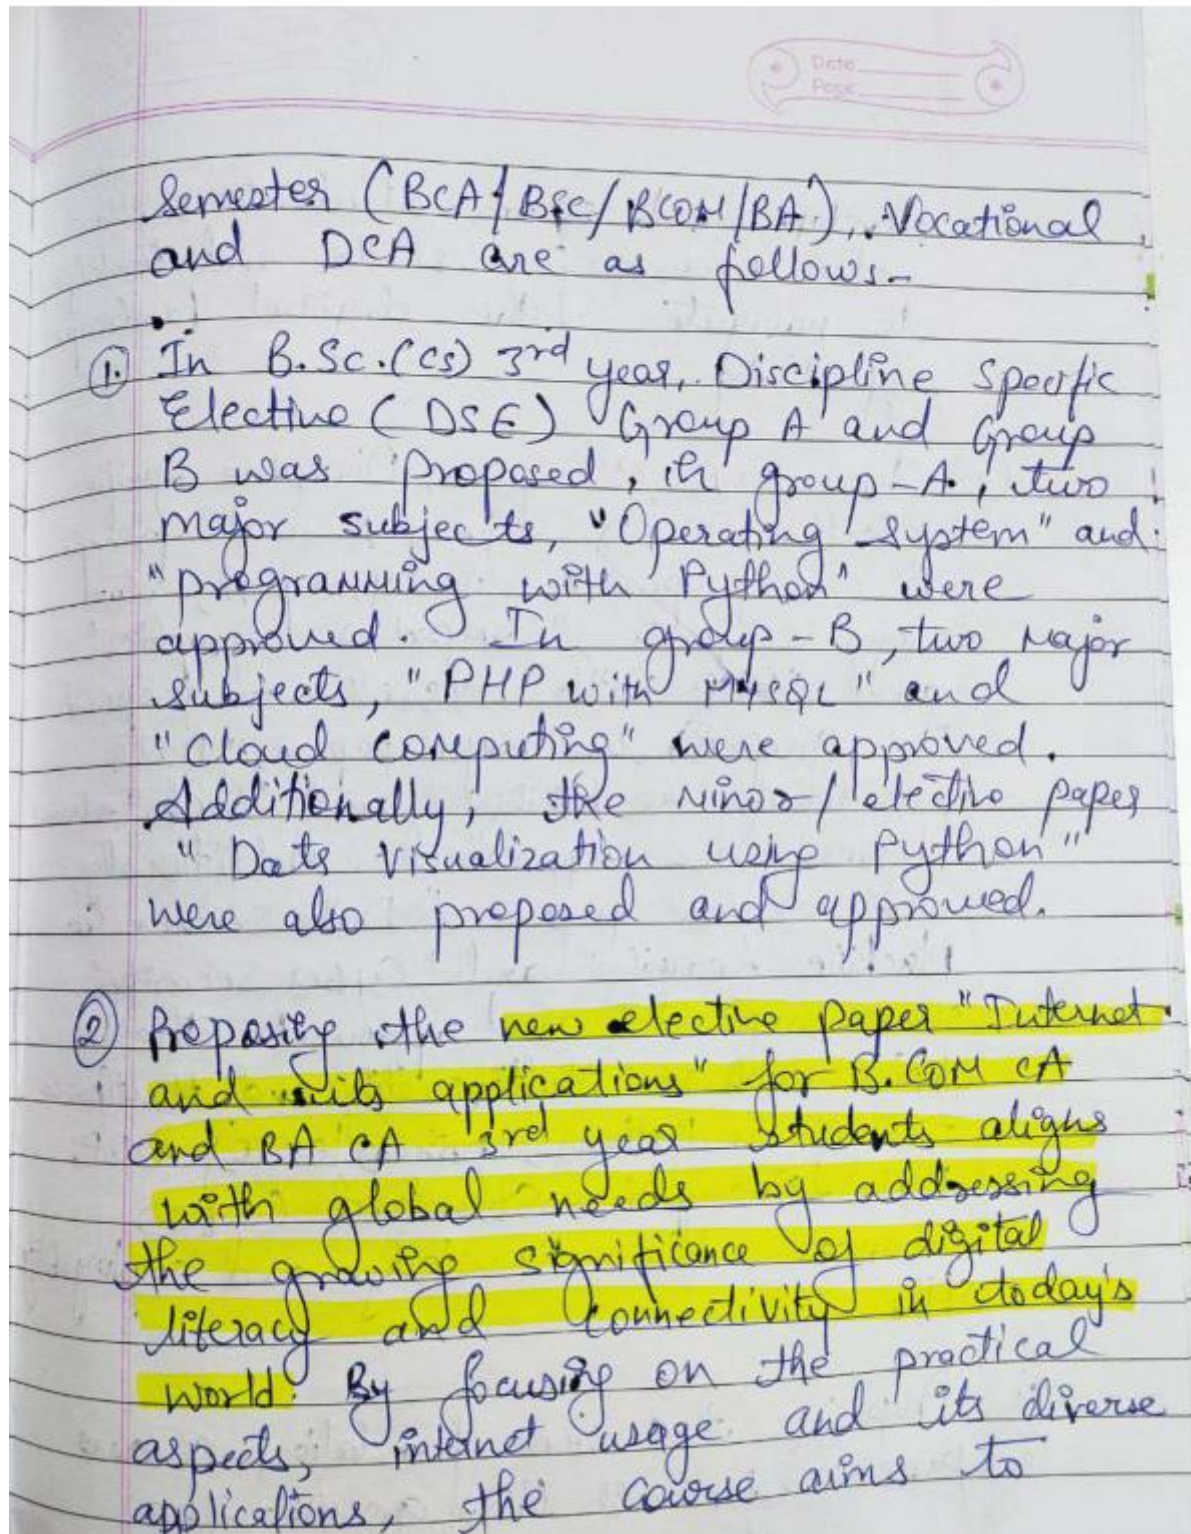 Date
Page
Semester (BCA/BSC/BCOM/BA), Vocational
and DCA are as follows-
1. In B.Sc.(CS) 3rd year, Discipline Specific
Elective (DSE) Group A and Group
B was proposed, in group-A, two
major subjects, "Operating System" and
"programming with Python" were
approved. In group-B, two major
subjects, "PHP with MYSQL" and
"Cloud Computing" were approved.
Additionally, the minor/elective paper
"Data Visualization using Python"
were also proposed and approved.
2 Proposing the new elective paper "Internet
and its applications" for B.COM CA
and BA CA 3rd year students aligns
with global needs by addressing
the growing significance of digital
literacy and connectivity in today's
world. By focusing on the practical
aspects, internet usage and its diverse
applications, the course aims to